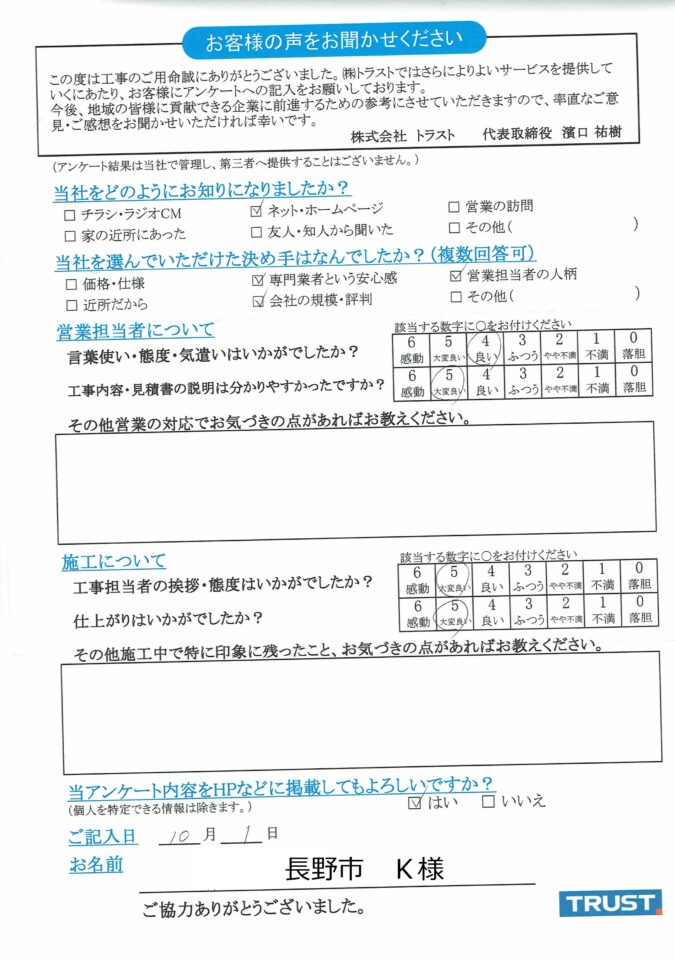 お客様の声をお聞かせください
この度は工事のご用命誠にありがとうございました。㈱トラストではさらによりよいサービスを提供して
いくにあたり、お客様にアンケートへの記入をお願いしております。
今後、地域の皆様に貢献できる企業に前進するための参考にさせていただきますので、率直なご意
見・ご感想をお聞かせいただければ幸いです。
株式会社 トラスト 代表取締役 濱口 祐樹
(アンケート結果は当社で管理し、第三者へ提供することはございません。)
当社をどのようにお知りになりましたか？
□ チラシ・ラジオCM ☑ ネット・ホームページ □ 営業の訪問
□ 家の近所にあった □ 友人・知人から聞いた □ その他( )
当社を選んでいただけた決め手はなんでしたか？(複数回答可)
□ 価格・仕様 ☑ 専門業者という安心感 ☑ 営業担当者の人柄
□ 近所だから ☑ 会社の規模・評判 □ その他( )
営業担当者について
該当する数字に○をお付けください
言葉使い・態度・気遣いはいかがでしたか？
6 5 4 3 2 1 0
感動 大変良い 良い ふつう やや不満 不満 落胆
工事内容・見積書の説明は分かりやすかったですか？
6 5 4 3 2 1 0
感動 大変良い 良い ふつう やや不満 不満 落胆
その他営業の対応でお気づきの点があればお教えください。
施工について
該当する数字に○をお付けください
工事担当者の挨拶・態度はいかがでしたか？
6 5 4 3 2 1 0
感動 大変良い 良い ふつう やや不満 不満 落胆
仕上がりはいかがでしたか？
6 5 4 3 2 1 0
感動 大変良い 良い ふつう やや不満 不満 落胆
その他施工中で特に印象に残ったこと、お気づきの点があればお教えください。
当アンケート内容をHPなどに掲載してもよろしいですか？
(個人を特定できる情報は除きます。)
☑ はい □ いいえ
ご記入日 10 月 1 日
お名前 長野市 K様
ご協力ありがとうございました。
TRUST.